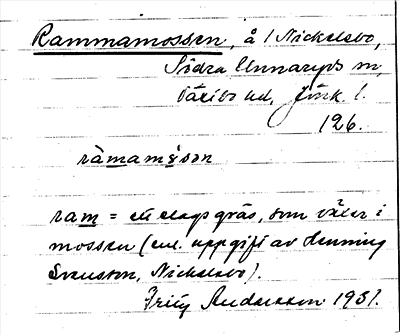 Rammamossen, å / Nickelsbo,
Södra Unnaryds sn,
Västbo hd, Jönk. l.
126.
ràmamɷ̀sən
ram = ett slags gräs, som växer i
mossen (enl. uppgift av Henning
Svensson, Nickelsbo).
Fritz Andersson 1931.